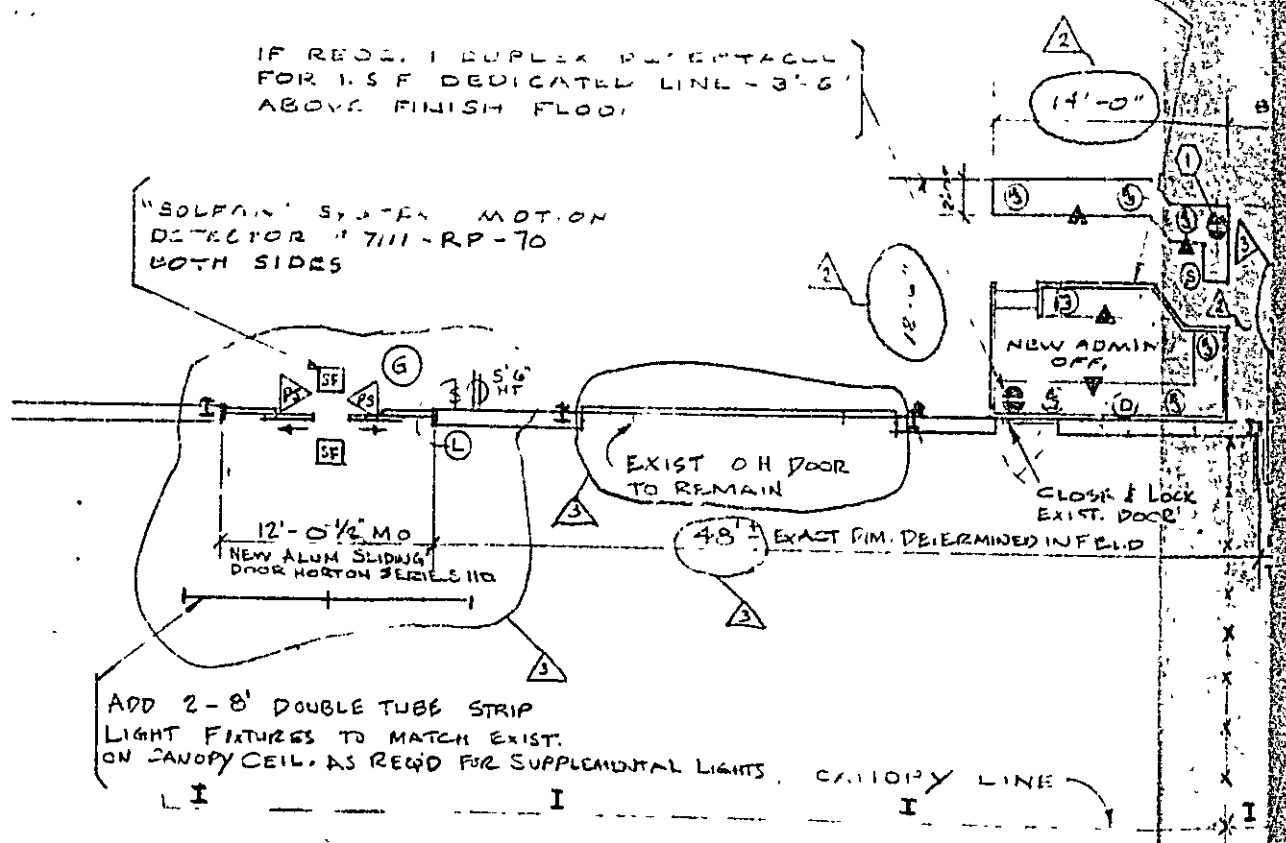 IF REQD. 1 DUPLEX RECEPTACLE
FOR I.S F DEDICATED LINE - 3'-6"
ABOVE FINISH FLOOR
2
14'-0"
1
"SOLFAN" SYSTEM MOTION
DETECTOR # 7111-RP-70
BOTH SIDES
3
3
3
3
S
2
2
3
NEW ADMIN
OFF.
3
D
3
SF
PS
PS
G
5'6"
HT
$
SF
L
EXIST O H DOOR
TO REMAIN
CLOSE & LOCK
EXIST. DOOR
3
12'-0 1/2" MO
NEW ALUM SLIDING
DOOR HORTON SERIES 110
48'± EXACT DIM. DETERMINED IN FELD
3
3
ADD 2-8' DOUBLE TUBE STRIP
LIGHT FIXTURES TO MATCH EXIST.
ON CANOPY CEIL. AS REQ'D FOR SUPPLEMENTAL LIGHTS.
CANOPY LINE